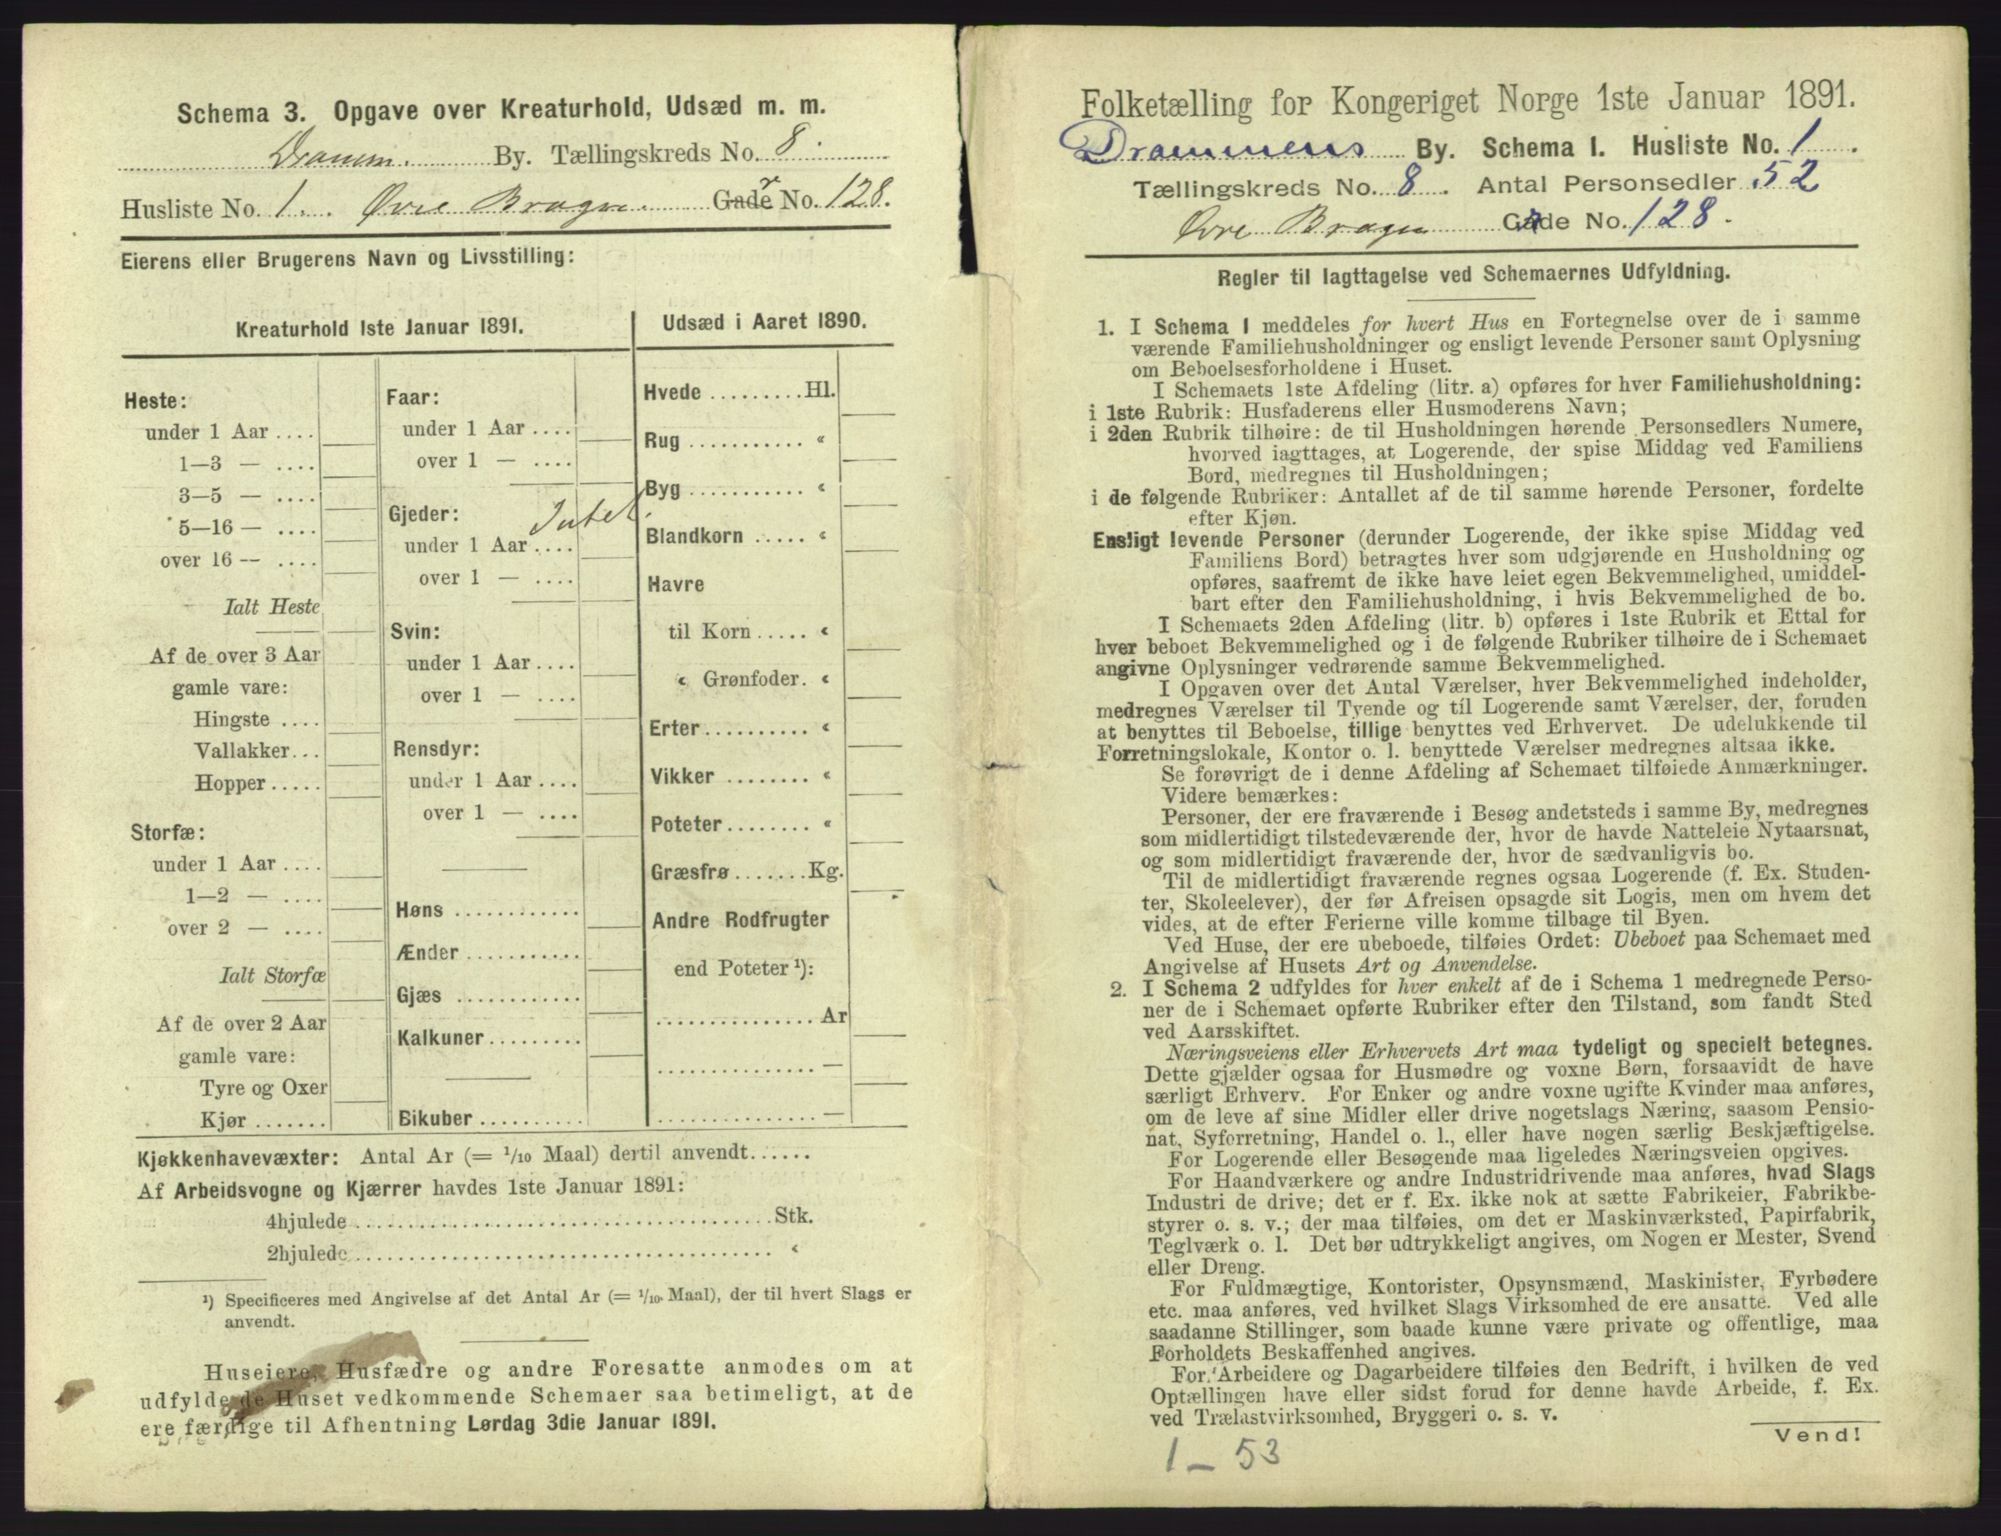 Schema 3. Opgave over Kreaturhold, Udsæd m. m.
Dramm. By. Tællingskreds No. 8.
Husliste No. 1. Øvre Bragn. Gade r No. 128.
Eierens eller Brugerens Navn og Livsstilling:
Kreaturhold 1ste Januar 1891.
Heste:
under 1 Aar ....
1—3 — ....
3—5 — ....
5—16 — ....
over 16 — ....
Ialt Heste
Af de over 3 Aar
gamle vare:
Hingste ....
Vallakker...
Hopper.....
Storfæ:
under 1 Aar ....
1—2 — ....
over 2 — ....
Ialt Storfæ
Af de over 2 Aar
gamle vare:
Tyre og Oxer
Kjør .......
Faar:
under 1 Aar ....
over 1 — ....
Gjeder: Intet.
under 1 Aar ....
over 1 — ....
Svin:
under 1 Aar....
over 1 — ....
Rensdyr:
under 1 Aar....
over 1 — ....
Høns ............
Ænder ...........
Gjæs ............
Kalkuner.........
Bikuber..........
Udsæd i Aaret 1890.
Hvede .........Hl.
Rug ........... "
Byg ........... "
Blandkorn ..... "
Havre
til Korn ..... "
" Grønfoder. "
Erter.......... "
Vikker ........ "
Poteter........ "
Græsfrø.......Kg.
Andre Rodfrugter
end Poteter ¹):
............... Ar
............... —
............... —
Kjøkkenhavevæxter: Antal Ar (= 1/10 Maal) dertil anvendt......
Af Arbeidsvogne og Kjærrer havdes 1ste Januar 1891:
4hjulede ........................................Stk.
2hjulede........................................ "
¹) Specificeres med Angivelse af det Antal Ar (= 1/10 Maal), der til hvert Slags er
anvendt.
Huseiere, Husfædre og andre Foresatte anmodes om at
udfylde de Huset vedkommende Schemaer saa betimeligt, at de
ere færdige til Afhentning Lørdag 3die Januar 1891.
Folketælling for Kongeriget Norge 1ste Januar 1891.
Drammens By. Schema I. Husliste No. 1.
Tællingskreds No. 8. Antal Personsedler 52
Øvre Bragn Gade r No. 128.
Regler til Iagttagelse ved Schemaernes Udfyldning.
1. I Schema 1 meddeles for hvert Hus en Fortegnelse over de i samme
værende Familiehusholdninger og ensligt levende Personer samt Oplysning
om Beboelsesforholdene i Huset.
I Schemaets 1ste Afdeling (litr. a) opføres for hver Familiehusholdning:
i 1ste Rubrik: Husfaderens eller Husmoderens Navn;
i 2den Rubrik tilhøire: de til Husholdningen hørende Personsedlers Numere,
hvorved iagttages, at Logerende, der spise Middag ved Familiens
Bord, medregnes til Husholdningen;
i de følgende Rubriker: Antallet af de til samme hørende Personer, fordelte
efter Kjøn.
Ensligt levende Personer (derunder Logerende, der ikke spise Middag ved
Familiens Bord) betragtes hver som udgjørende en Husholdning og
opføres, saafremt de ikke have leiet egen Bekvemmelighed, umiddel-
bart efter den Familiehusholdning, i hvis Bekvemmelighed de bo.
I Schemaets 2den Afdeling (litr. b) opføres i 1ste Rubrik et Ettal for
hver beboet Bekvemmelighed og i de følgende Rubriker tilhøire de i Schemaet
angivne Oplysninger vedrørende samme Bekvemmelighed.
I Opgaven over det Antal Værelser, hver Bekvemmelighed indeholder,
medregnes Værelser til Tyende og til Logerende samt Værelser, der, foruden
at benyttes til Beboelse, tillige benyttes ved Erhvervet. De udelukkende til
Forretningslokale, Kontor o. l. benyttede Værelser medregnes altsaa ikke.
Se forøvrigt de i denne Afdeling af Schemaet tilføiede Anmærkninger.
Videre bemærkes:
Personer, der ere fraværende i Besøg andetsteds i samme By, medregnes
som midlertidigt tilstedeværende der, hvor de havde Natteleie Nytaarsnat,
og som midlertidigt fraværende der, hvor de sædvanligvis bo.
Til de midlertidigt fraværende regnes ogsaa Logerende (f. Ex. Studen-
ter, Skoleelever), der før Afreisen opsagde sit Logis, men om hvem det
vides, at de efter Ferierne ville komme tilbage til Byen.
Ved Huse, der ere ubeboede, tilføies Ordet: Ubeboet paa Schemaet med
Angivelse af Husets Art og Anvendelse.
2. I Schema 2 udfyldes for hver enkelt af de i Schema 1 medregnede Perso-
ner de i Schemaet opførte Rubriker efter den Tilstand, som fandt Sted
ved Aarsskiftet.
Næringsveiens eller Erhvervets Art maa tydeligt og specielt betegnes.
Dette gjælder ogsaa for Husmødre og voxne Børn, forsaavidt de have
særligt Erhverv. For Enker og andre voxne ugifte Kvinder maa anføres,
om de leve af sine Midler eller drive nogetslags Næring, saasom Pensio-
nat, Syforretning, Handel o. l., eller have nogen særlig Beskjæftigelse.
For Logerende eller Besøgende maa ligeledes Næringsveien opgives.
For Haandværkere og andre Industridrivende maa anføres, hvad Slags
Industri de drive; det er f. Ex. ikke nok at sætte Fabrikeier, Fabrikbe-
styrer o. s. v.; der maa tilføies, om det er Maskinværksted, Papirfabrik,
Teglværk o. l. Det bør udtrykkeligt angives, om Nogen er Mester, Svend
eller Dreng.
For Fuldmægtige, Kontorister, Opsynsmænd, Maskinister, Fyrbødere
etc. maa anføres, ved hvilket Slags Virksomhed de ere ansatte. Ved alle
saadanne Stillinger, som baade kunne være private og offentlige, maa
Forholdets Beskaffenhed angives.
For Arbeidere og Dagarbeidere tilføies den Bedrift, i hvilken de ved
Optællingen have eller sidst forud for denne havde Arbeide, f. Ex.
ved Trælastvirksomhed, Bryggeri o. s. v.
Vend!
1 — 53